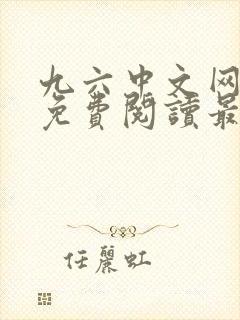 九六中文网
免費閱讀最
任麗虹